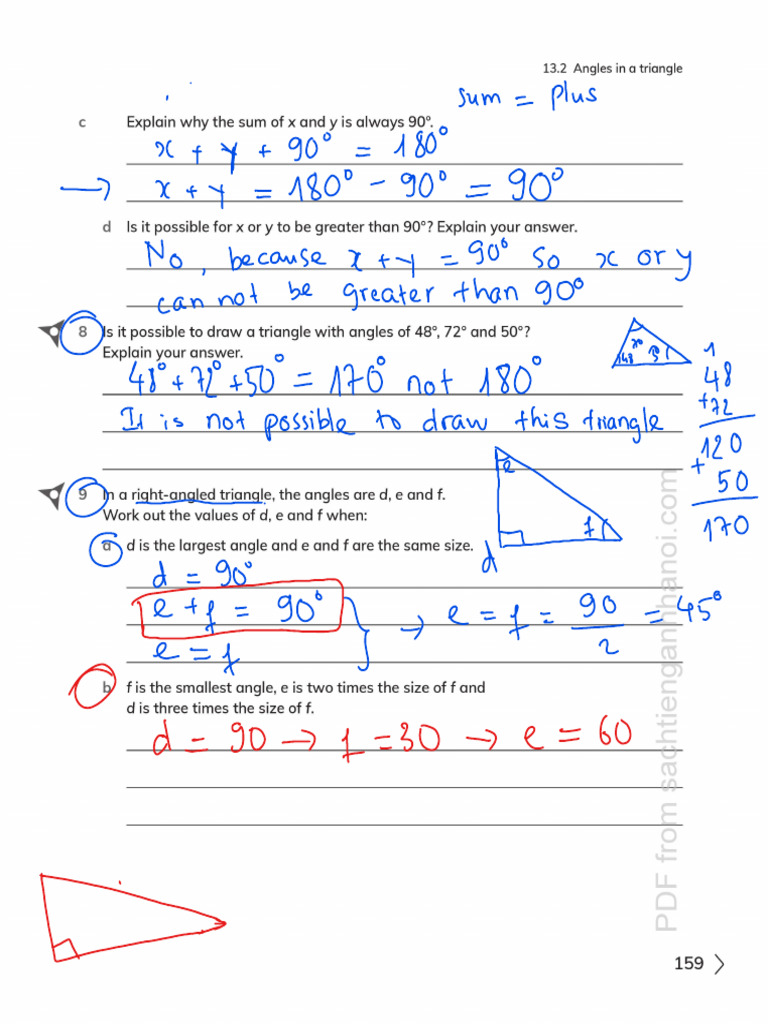 13.2 Angles in a triangle
sum = plus
c Explain why the sum of x and y is always 90°.
x + y + 90° = 180°
→ x + y = 180° - 90° = 90°
d Is it possible for x or y to be greater than 90°? Explain your answer.
No, because x + y = 90° so x or y
can not be greater than 90°
8 Is it possible to draw a triangle with angles of 48°, 72° and 50°?
Explain your answer.
48° + 72° + 50° = 170° not 180°
It is not possible to draw this triangle
1
48
+72
120
+
50
170
9 In a right-angled triangle, the angles are d, e and f.
Work out the values of d, e and f when:
e
f
d
a d is the largest angle and e and f are the same size.
d = 90°
e + f = 90° → e = f = 90/2 = 45°
e = f
b f is the smallest angle, e is two times the size of f and
d is three times the size of f.
d = 90 → f = 30 → e = 60
PDF from sachtienganhhanoi.com
159